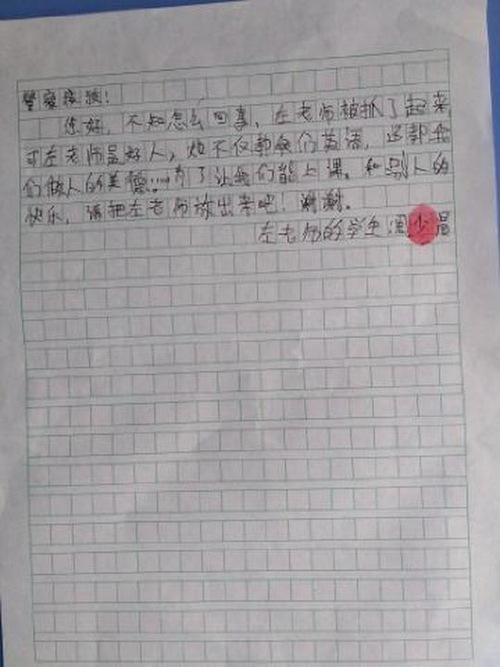 警察叔叔!
您好,不知怎么回事,左老师被抓了起来,
可左老师是好人,她不仅教我们英语,还教我
们做人的美德……为了让我们能上课。和别人的
快乐,请把左老师放出来吧!谢谢。
左老师的学生:周少